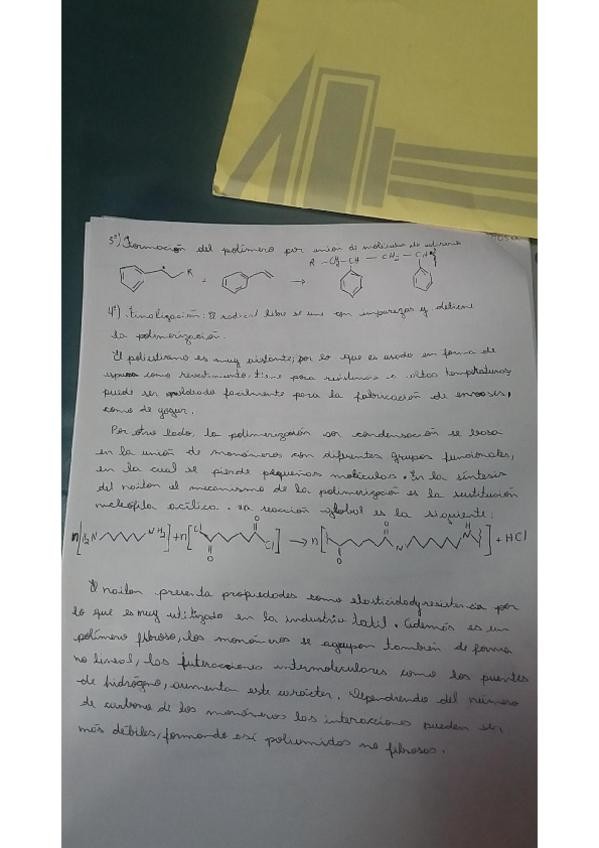 3º) Formación del polímero por unión de moléculas de estireno
R + → R -CH-CH - CH2 - CH
4º) Finalización: El radical libre se une con impurezas y detiene
la polimerización.
El poliestireno es muy aislante; por lo que es usado en forma de
espuma como revestimiento, tiene poca resistencia a altas temperaturas,
puede ser moldeado facilmente para la fabricación de envases,
como de yogur.
Por otro lado, la polimerización por condensación se basa
en la unión de monómeros con diferentes grupos funcionales,
en la cual se pierde pequeñas moléculas. En la síntesis
del nailon el mecanismo de la polimerización es la sustitución
nucleófila acílica. La reacción global es la siguiente:
n[H2N NH2] + n[Cl O O Cl] → n[ O O N H N ] + HCl
El nailon presenta propiedades como elasticidad y resistencia por
lo que es muy utilizado en la industria textil. Además es un
polímero fibroso, los monómeros se agrupan también de forma
no lineal, las interacciones intermoleculares como los puentes
de hidrógeno, aumentan este carácter. Dependiendo del número
de carbono de los monómeros las interacciones pueden ser
más débiles, formando así poliamidas no fibrosas.